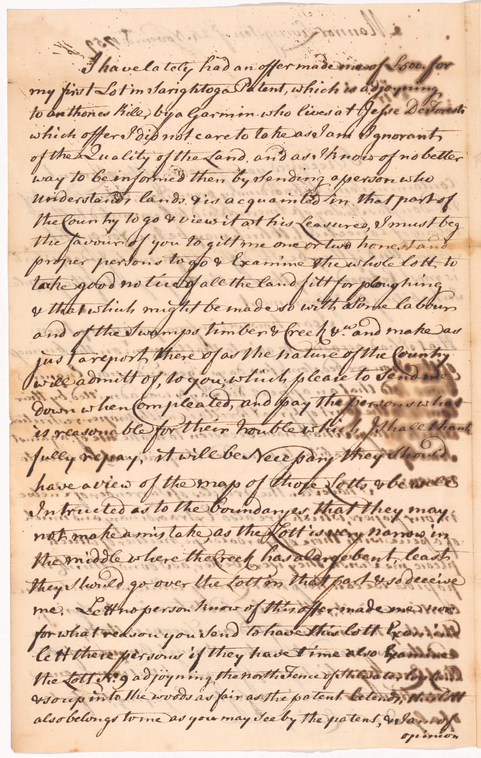 Mannor Livingston 24 Novem. 1752
I have lately had an offer made me of £500. for
my first Lot in Sarightoga Patent, which is adjoyning
to anthones Kill, by a German who lives at Jesse De Forests
which offer I did not care to take as I am Ignorant
of the Quality of the Land, and as I know of no better
way to be informed then by sending a person who
understands lands & is acquainted in that part of
the County to go & view it at his Leasure, I must beg
the favour of you to gitt me one or two honest and
proper persons to go & Examine the whole Lott, to
take good notice of all the land fitt for ploughing
& that which might be made so with some labour
and of the Swamps timber & Creek &ca. and make as
just a report, there of as the nature of the County
will admitt of, to you, which please to send me
down when Compleated, and pay the persons what
is reasonable for their trouble which I shall thank
fully repay, it will be Necessary they should
have a view of the map of those Lotts, & be well
Intructed as to the boundaryes, that they may
not make a mistake, as the Lott is very narrow in
the middle where the Creek has a large bent, least
they should go over the Lott in that part & so deceive
me. Lett no person know of this offer made me nor
for what reason you send to have this lott Examined
lett there persons if they have time also Examine
the Lott No. 9 adjoyning the north Fence of the
& so up into the woods as fair as the patent Extends, this lott
also belongs to me as you may see by the patent, & I am of
opinion